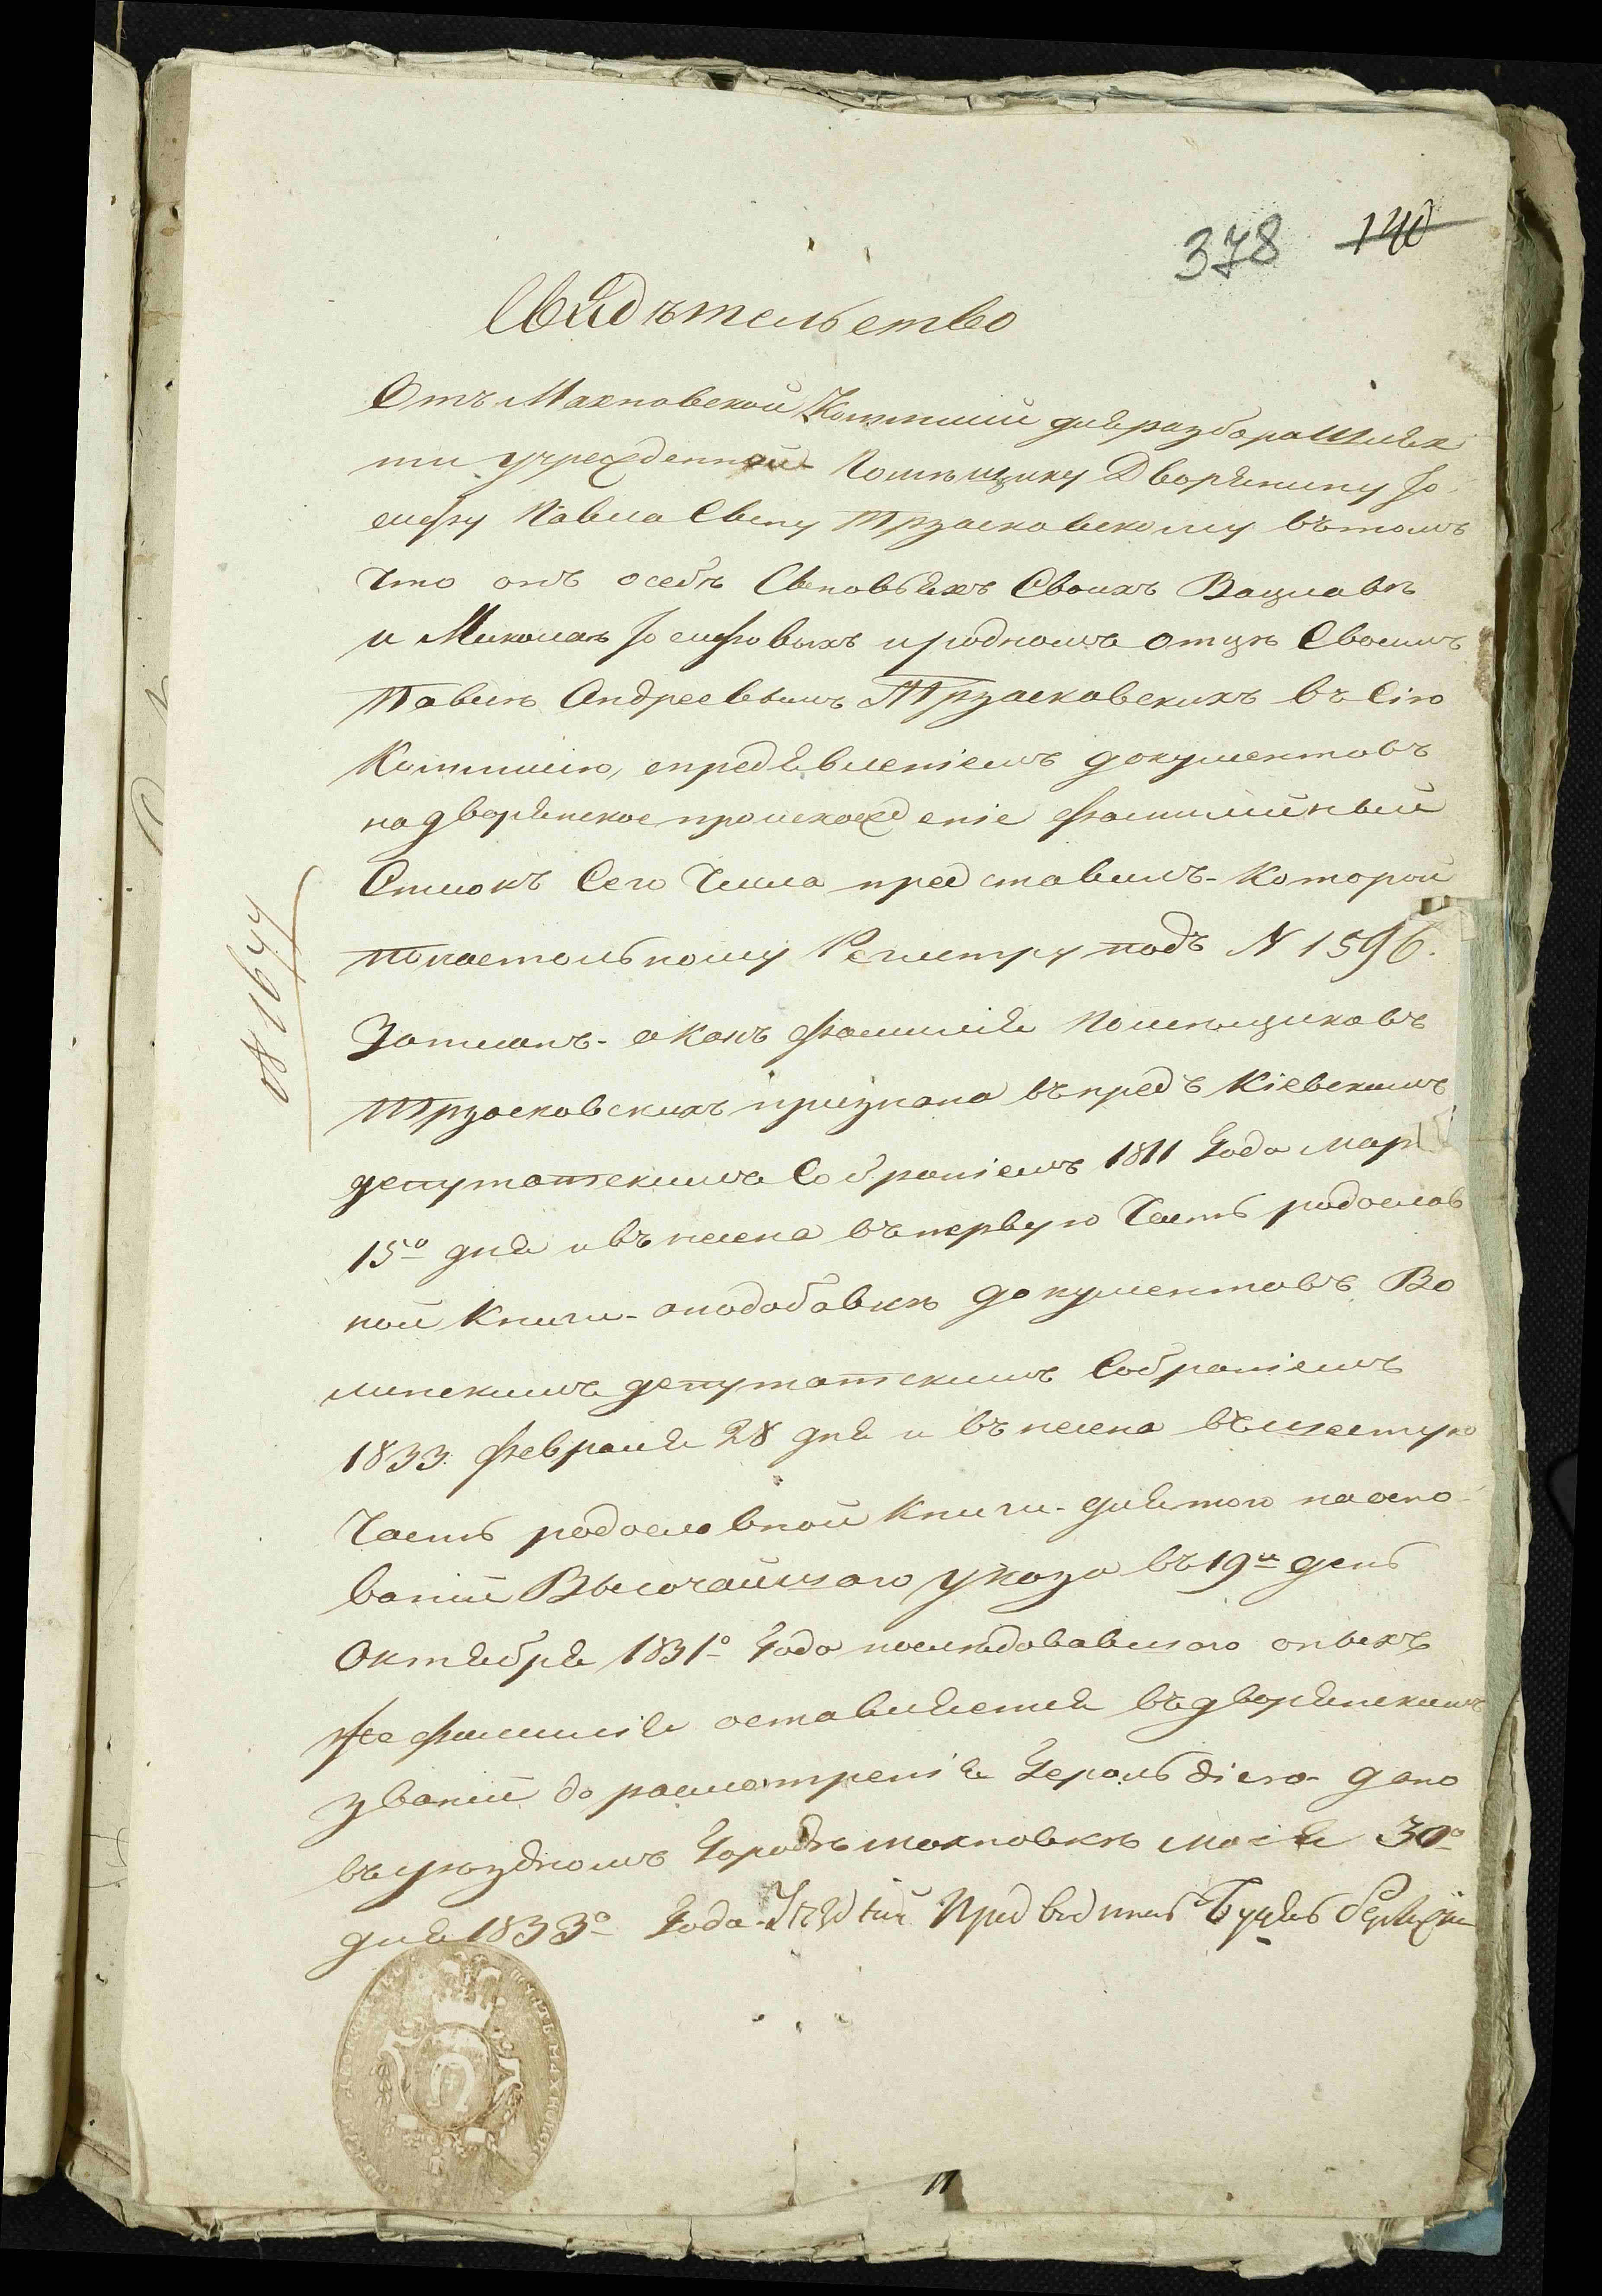 378 140
Свидѣтельство
Отъ Махновской Коммисіи для разбора Шлях
ти учрежденной Помѣщику Дворянину Іо
сифу Павла Сыну Трзасковскому въ томъ
что онъ о себѣ Сыновьяхъ Своихъ Вацлавѣ
и Миколаѣ Іосифовыхъ и родномъ отцѣ Своимъ
Павлѣ Андреевымъ Трзасковскихъ въ Сію
Коммисію, спредъявленіемъ документовъ
на дворянское происхожденіе фамилийный
Списокъ Сего Числа представилъ - Которой
по настольному Регистру подъ N 1596.
Записанъ - а какъ фамилія Помѣщиковъ
Трзасковскихъ признана въ предъ Кіевскимъ
депутатскимъ Собраніемъ 1811 Года Мар
15º дня и внесена въ первую Часть родослов
ной Книги - а по добавкѣ документовъ Во
линскимъ депутатскимъ Собраніемъ
1833 февраля 28 дня и внесена въ шестую
Часть родословной Книги - для того на осно
ваніи Высочайшаго указа въ 19й день
Октября 1831º Года послѣдовавшаго оныхъ
же фамилія оставляется въ дворянскимъ
званіи до расмотренія Герольдіею - дано
въ уѣздномъ Городѣ Махновкѣ маія 30º
дня 1833º Года - Уѣздный Предводитель
08 1644
11